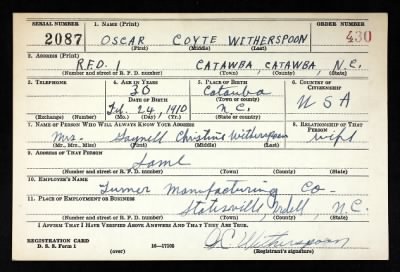 SERIAL NUMBER 1. NAME (Print) ORDER NUMBER
2087 OSCAR COYTE WITHERSPOON 430
(First) (Middle) (Last)
2. ADDRESS (Print)
R.F.D. 1 CATAWBA, CATAWBA, N.C.
(Number and street or R. F. D. number) (Town) (County) (State)
3. TELEPHONE 4. AGE IN YEARS 5. PLACE OF BIRTH 6. COUNTRY OF CITIZENSHIP
30 Catawba
DATE OF BIRTH (Town or county)
Feb. 24, 1910 N.C. U S A
(Exchange) (Number) (Mo.) (Day) (Yr.) (State or country)
7. NAME OF PERSON WHO WILL ALWAYS KNOW YOUR ADDRESS 8. RELATIONSHIP OF THAT PERSON
Mrs. Gaynell Christine Witherspoon wife
(Mr., Mrs., Miss) (First) (Middle) (Last)
9. ADDRESS OF THAT PERSON
Same
(Number and street or R. F. D. number) (Town) (County) (State)
10. EMPLOYER'S NAME
Turner Manufacturing Co-
11. PLACE OF EMPLOYMENT OR BUSINESS
Statesville Iredell, N.C.
(Number and street or R. F. D. number) (Town) (County) (State)
I AFFIRM THAT I HAVE VERIFIED ABOVE ANSWERS AND THAT THEY ARE TRUE.
O C Witherspoon
REGISTRATION CARD
D. S. S. Form 1 (over) (Registrant's signature)